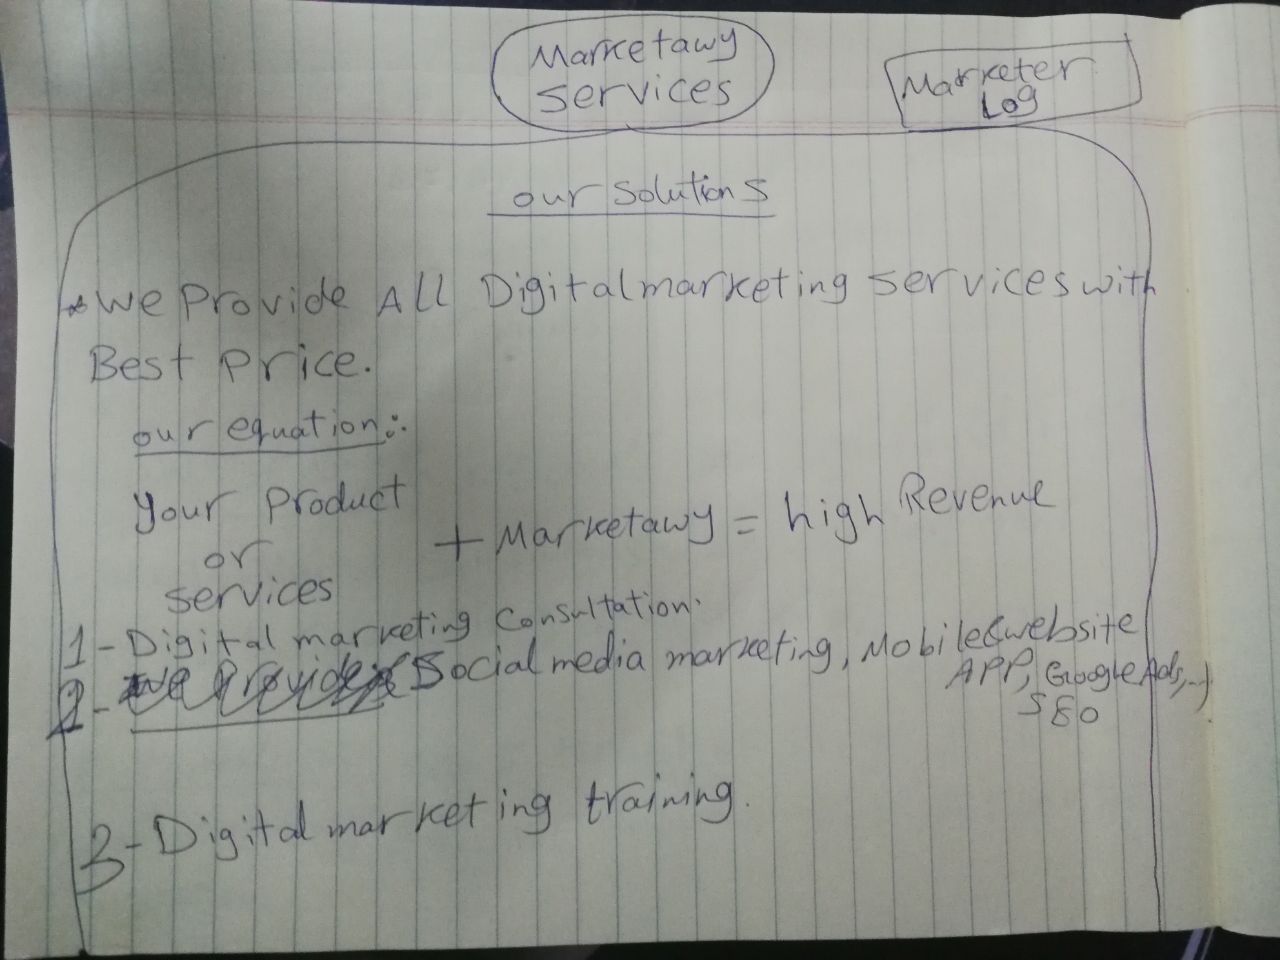 Marketawy
services
Marketer
Log
our solutions
* We Provide All Digital marketing services with
Best Price.
our equation:
Your Product
or
services
+ Marketawy = high Revenue
1- Digital marketing Consultation.
2- We Provide Social media marketing, Mobile & website
APP, Google Ads,...
SEO
3- Digital marketing training.